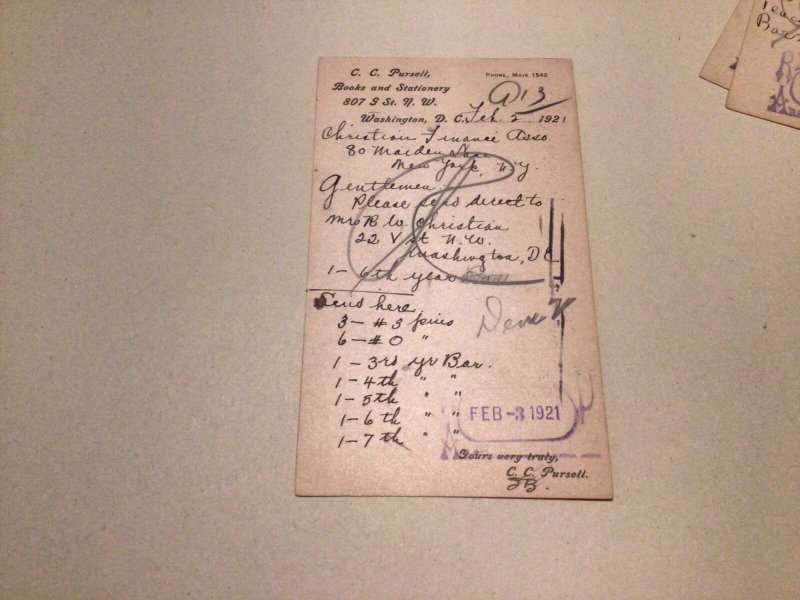 C. C. Pursell,
Phone, Main 1842
Books and Stationery
807 G St. N. W.
Washington, D. C. Feb 2 1921
Christian Finance Asso
80 Maiden Lane
New York, N.Y.
Gentlemen
Please send direct to
Mrs R W. Christian
22 V St N.W.
Washington, D C
1 - 6th year Bar
Send here
3 - #3 pins
6 - #0 "
1 - 3rd yr Bar.
1 - 4th " "
1 - 5th " "
1 - 6th " "
1 - 7th " "
FEB -3 1921
Yours very truly,
C. C. Pursell.